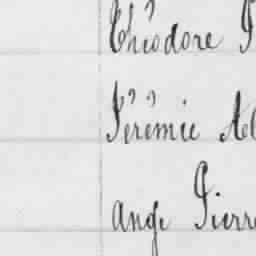 Théodore
Jérémie
Ange Pierre